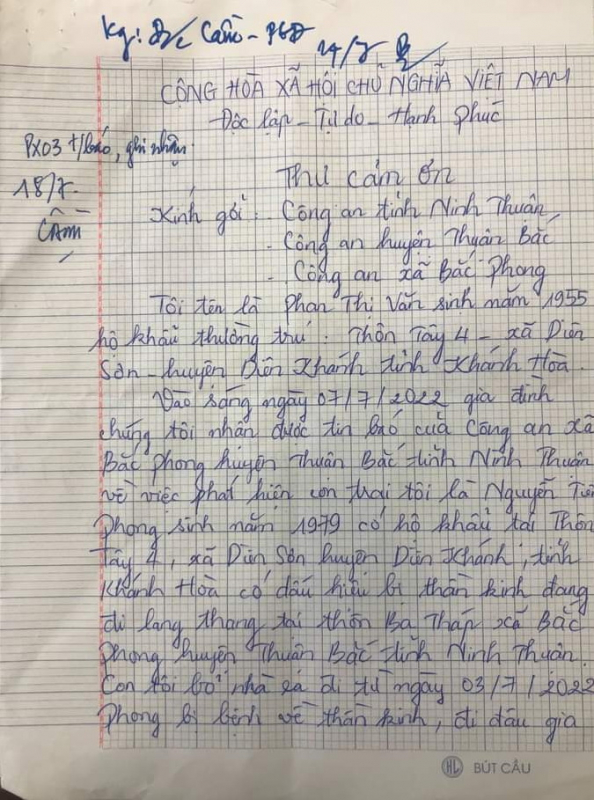 Kg: Đ/c Cầm - PGĐ
14/7
CỘNG HÒA XÃ HỘI CHỦ NGHĨA VIỆT NAM
Độc lập - Tự do - Hạnh phúc
PX03 t/báo, ghi nhận.
18/7.
Cầm
Thư cảm ơn
Kính gởi: - Công an tỉnh Ninh Thuận
- Công an huyện Thuận Bắc
- Công an xã Bắc Phong
Tôi tên là Phan Thị Vân sinh năm 1955
hộ khẩu thường trú: Thôn Tây 4 - xã Diên
Sơn - huyện Diên Khánh tỉnh Khánh Hòa.
Vào sáng ngày 07/7/2022 gia đình
chúng tôi nhận được tin báo của Công an xã
Bắc phong huyện Thuận Bắc tỉnh Ninh Thuận
về việc phát hiện con trai tôi là Nguyễn Tiên
Phong sinh năm 1979 có hộ khẩu tại Thôn
Tây 4, xã Diên Sơn huyện Diên Khánh, tỉnh
Khánh Hòa có dấu hiệu bị thần kinh đang
đi lang thang tại thôn Ba Tháp xã Bắc
Phong huyện Thuận Bắc tỉnh Ninh Thuận.
Con tôi bỏ nhà ra đi từ ngày 03/7/2022
Phong bị bệnh về thần kinh, đi đâu gia
HL BÚT CÂU